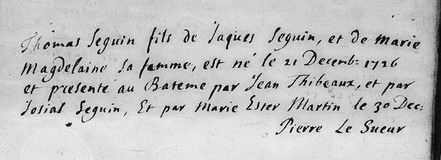 Thomas Seguin fils de Jaques Seguin, et de marie
Magdelaine sa famme, est né le 21 Decemb: 1726
et presente au Bateme par Jean Thibeaux, et par
Josial Seguin, Et par Marie Ester Martin le 30 Dec:
Pierre Le Sueur